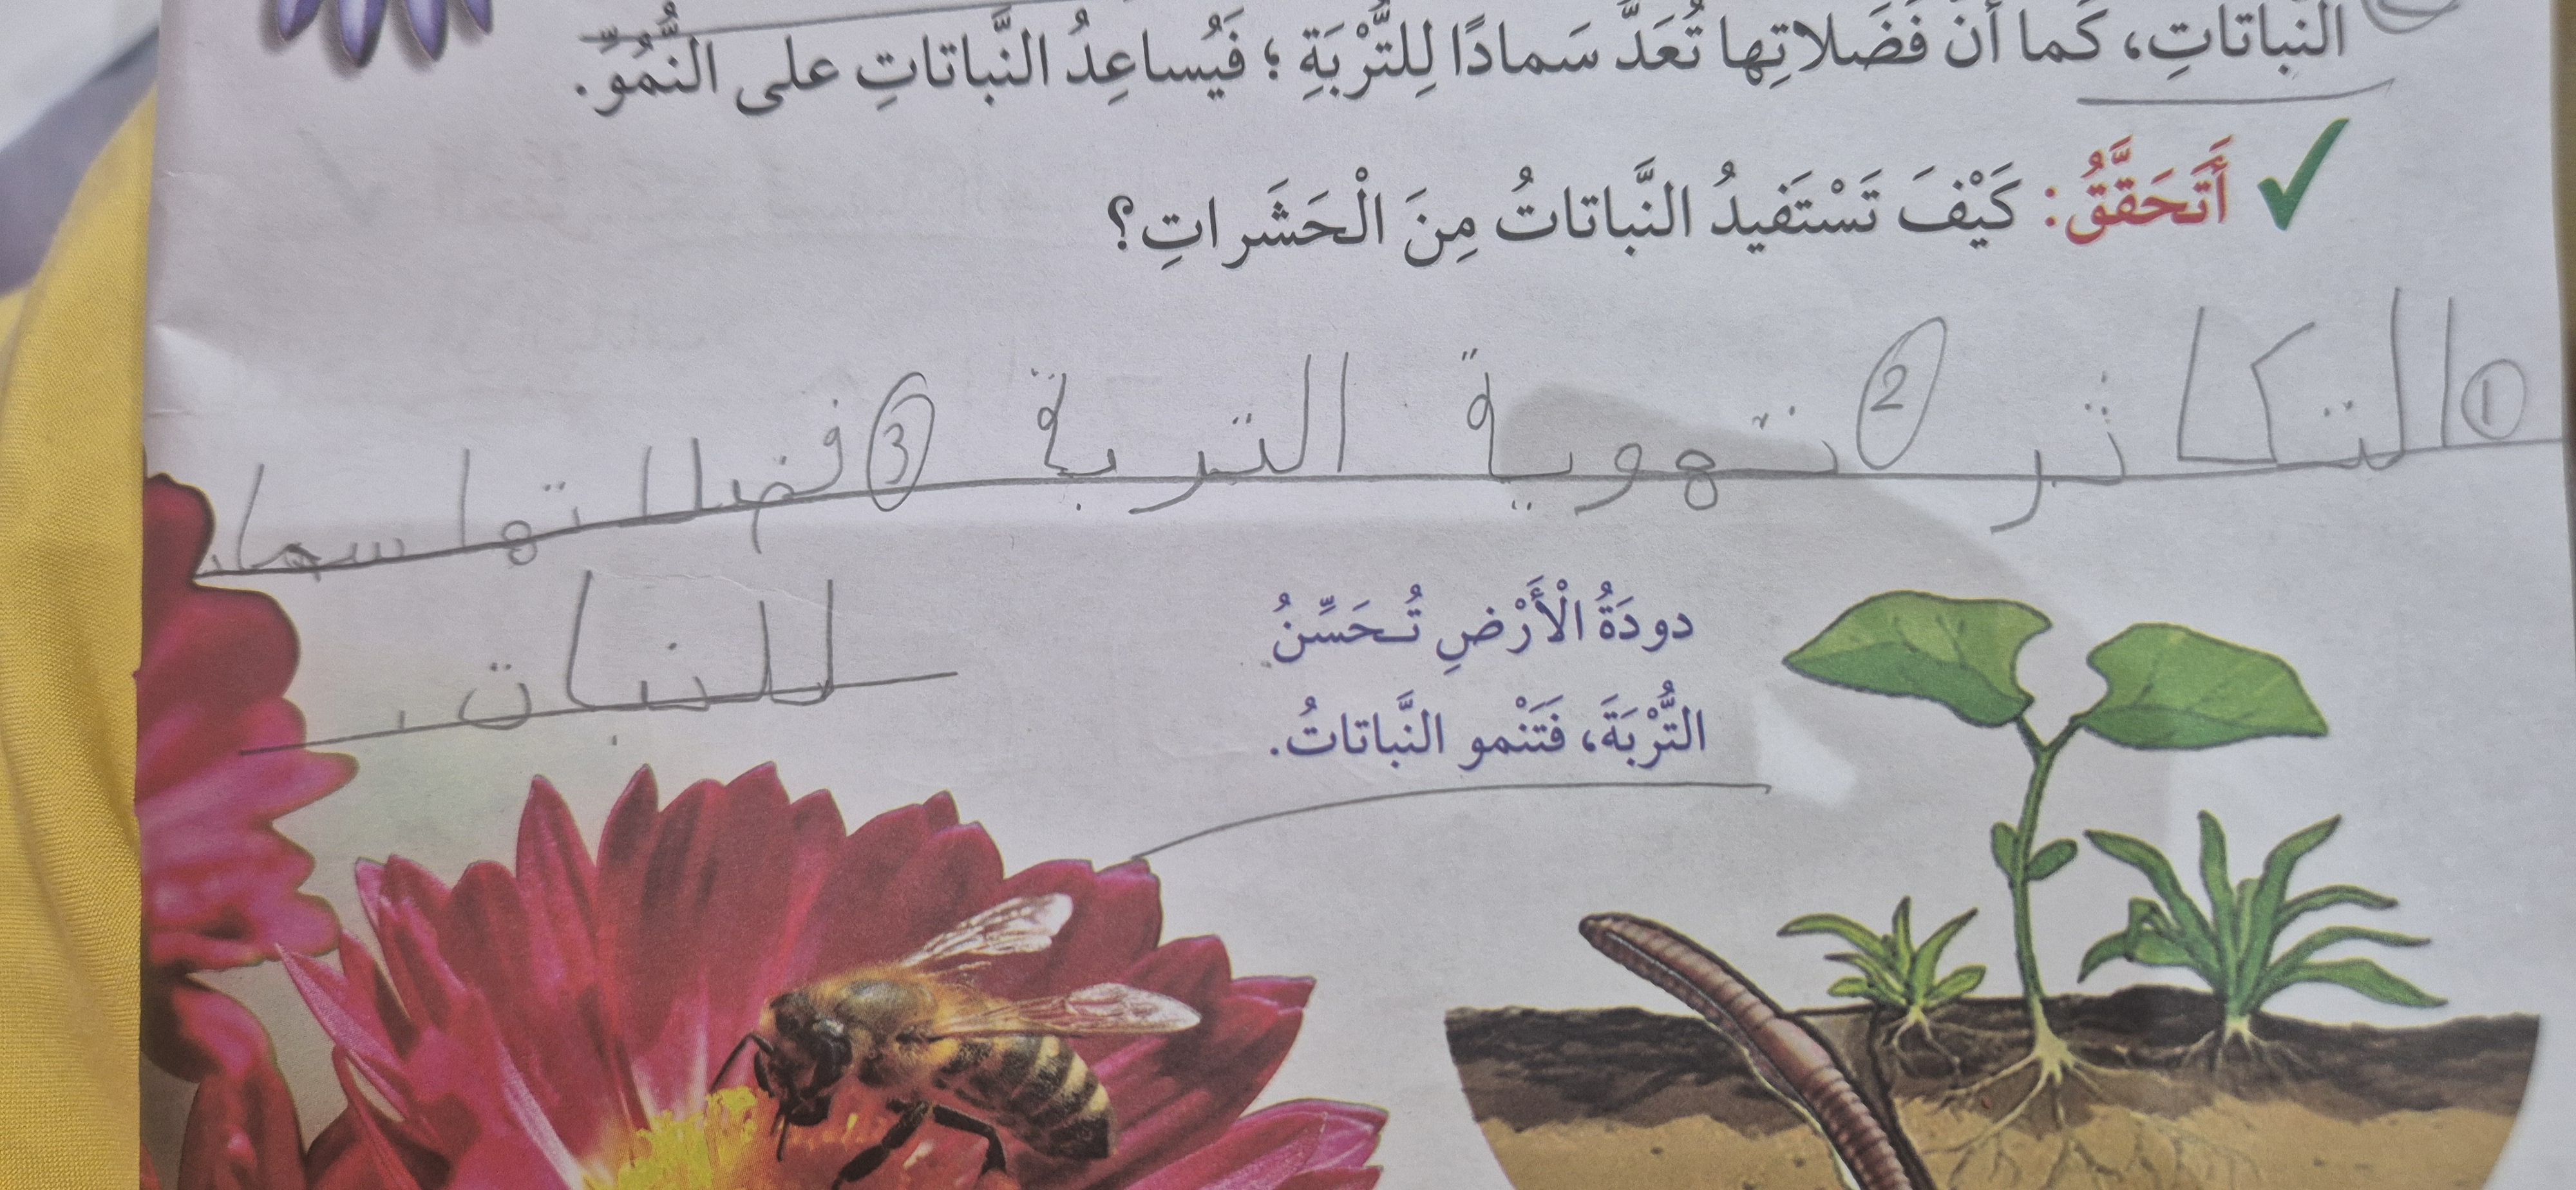 النَّباتاتِ، كَما أَنَّ فَضَلاتِها تُعَدُّ سَمادًا لِلتُّرْبَةِ؛ فَيُساعِدُ النَّباتاتِ على النُّمُوِّ.
أَتَحَقَّقُ: كَيْفَ تَسْتَفيدُ النَّباتاتُ مِنَ الْحَشَراتِ؟
① التكاثر ② تهوية التربة ③ فضلاتها سماد
للنبات.
دودَةُ الْأَرْضِ تُحَسِّنُ
التُّرْبَةَ، فَتَنْمو النَّباتاتُ.